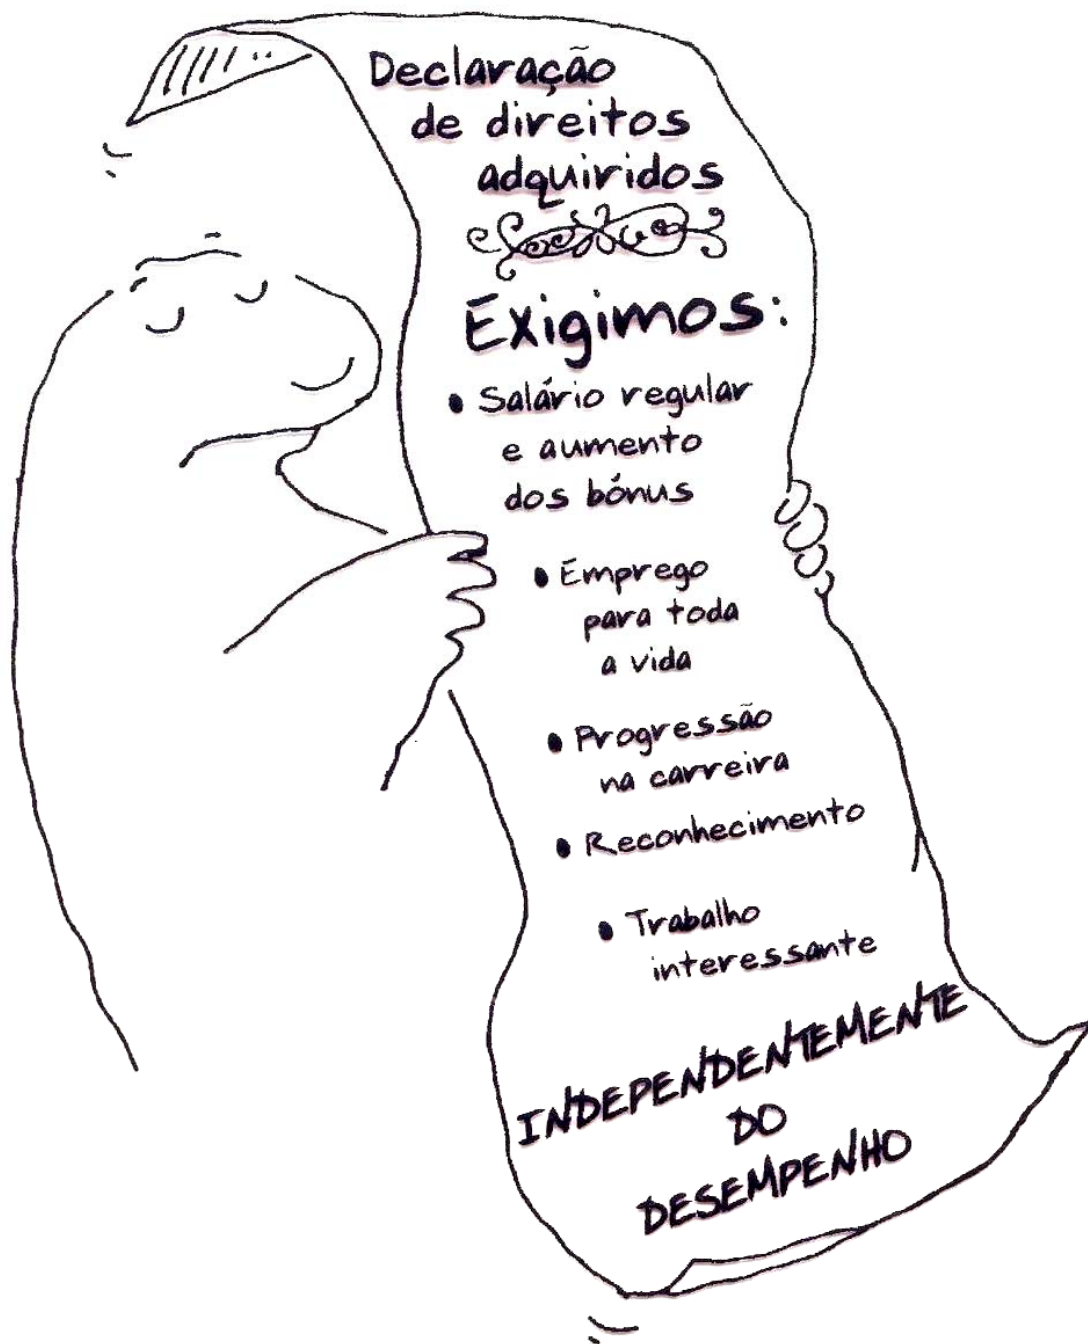 Declaração
de direitos
adquiridos
Exigimos:
• Salário regular
e aumento
dos bónus
• Emprego
para toda
a vida
• Progressão
na carreira
• Reconhecimento
• Trabalho
interessante
INDEPENDENTEMENTE
DO
DESEMPENHO